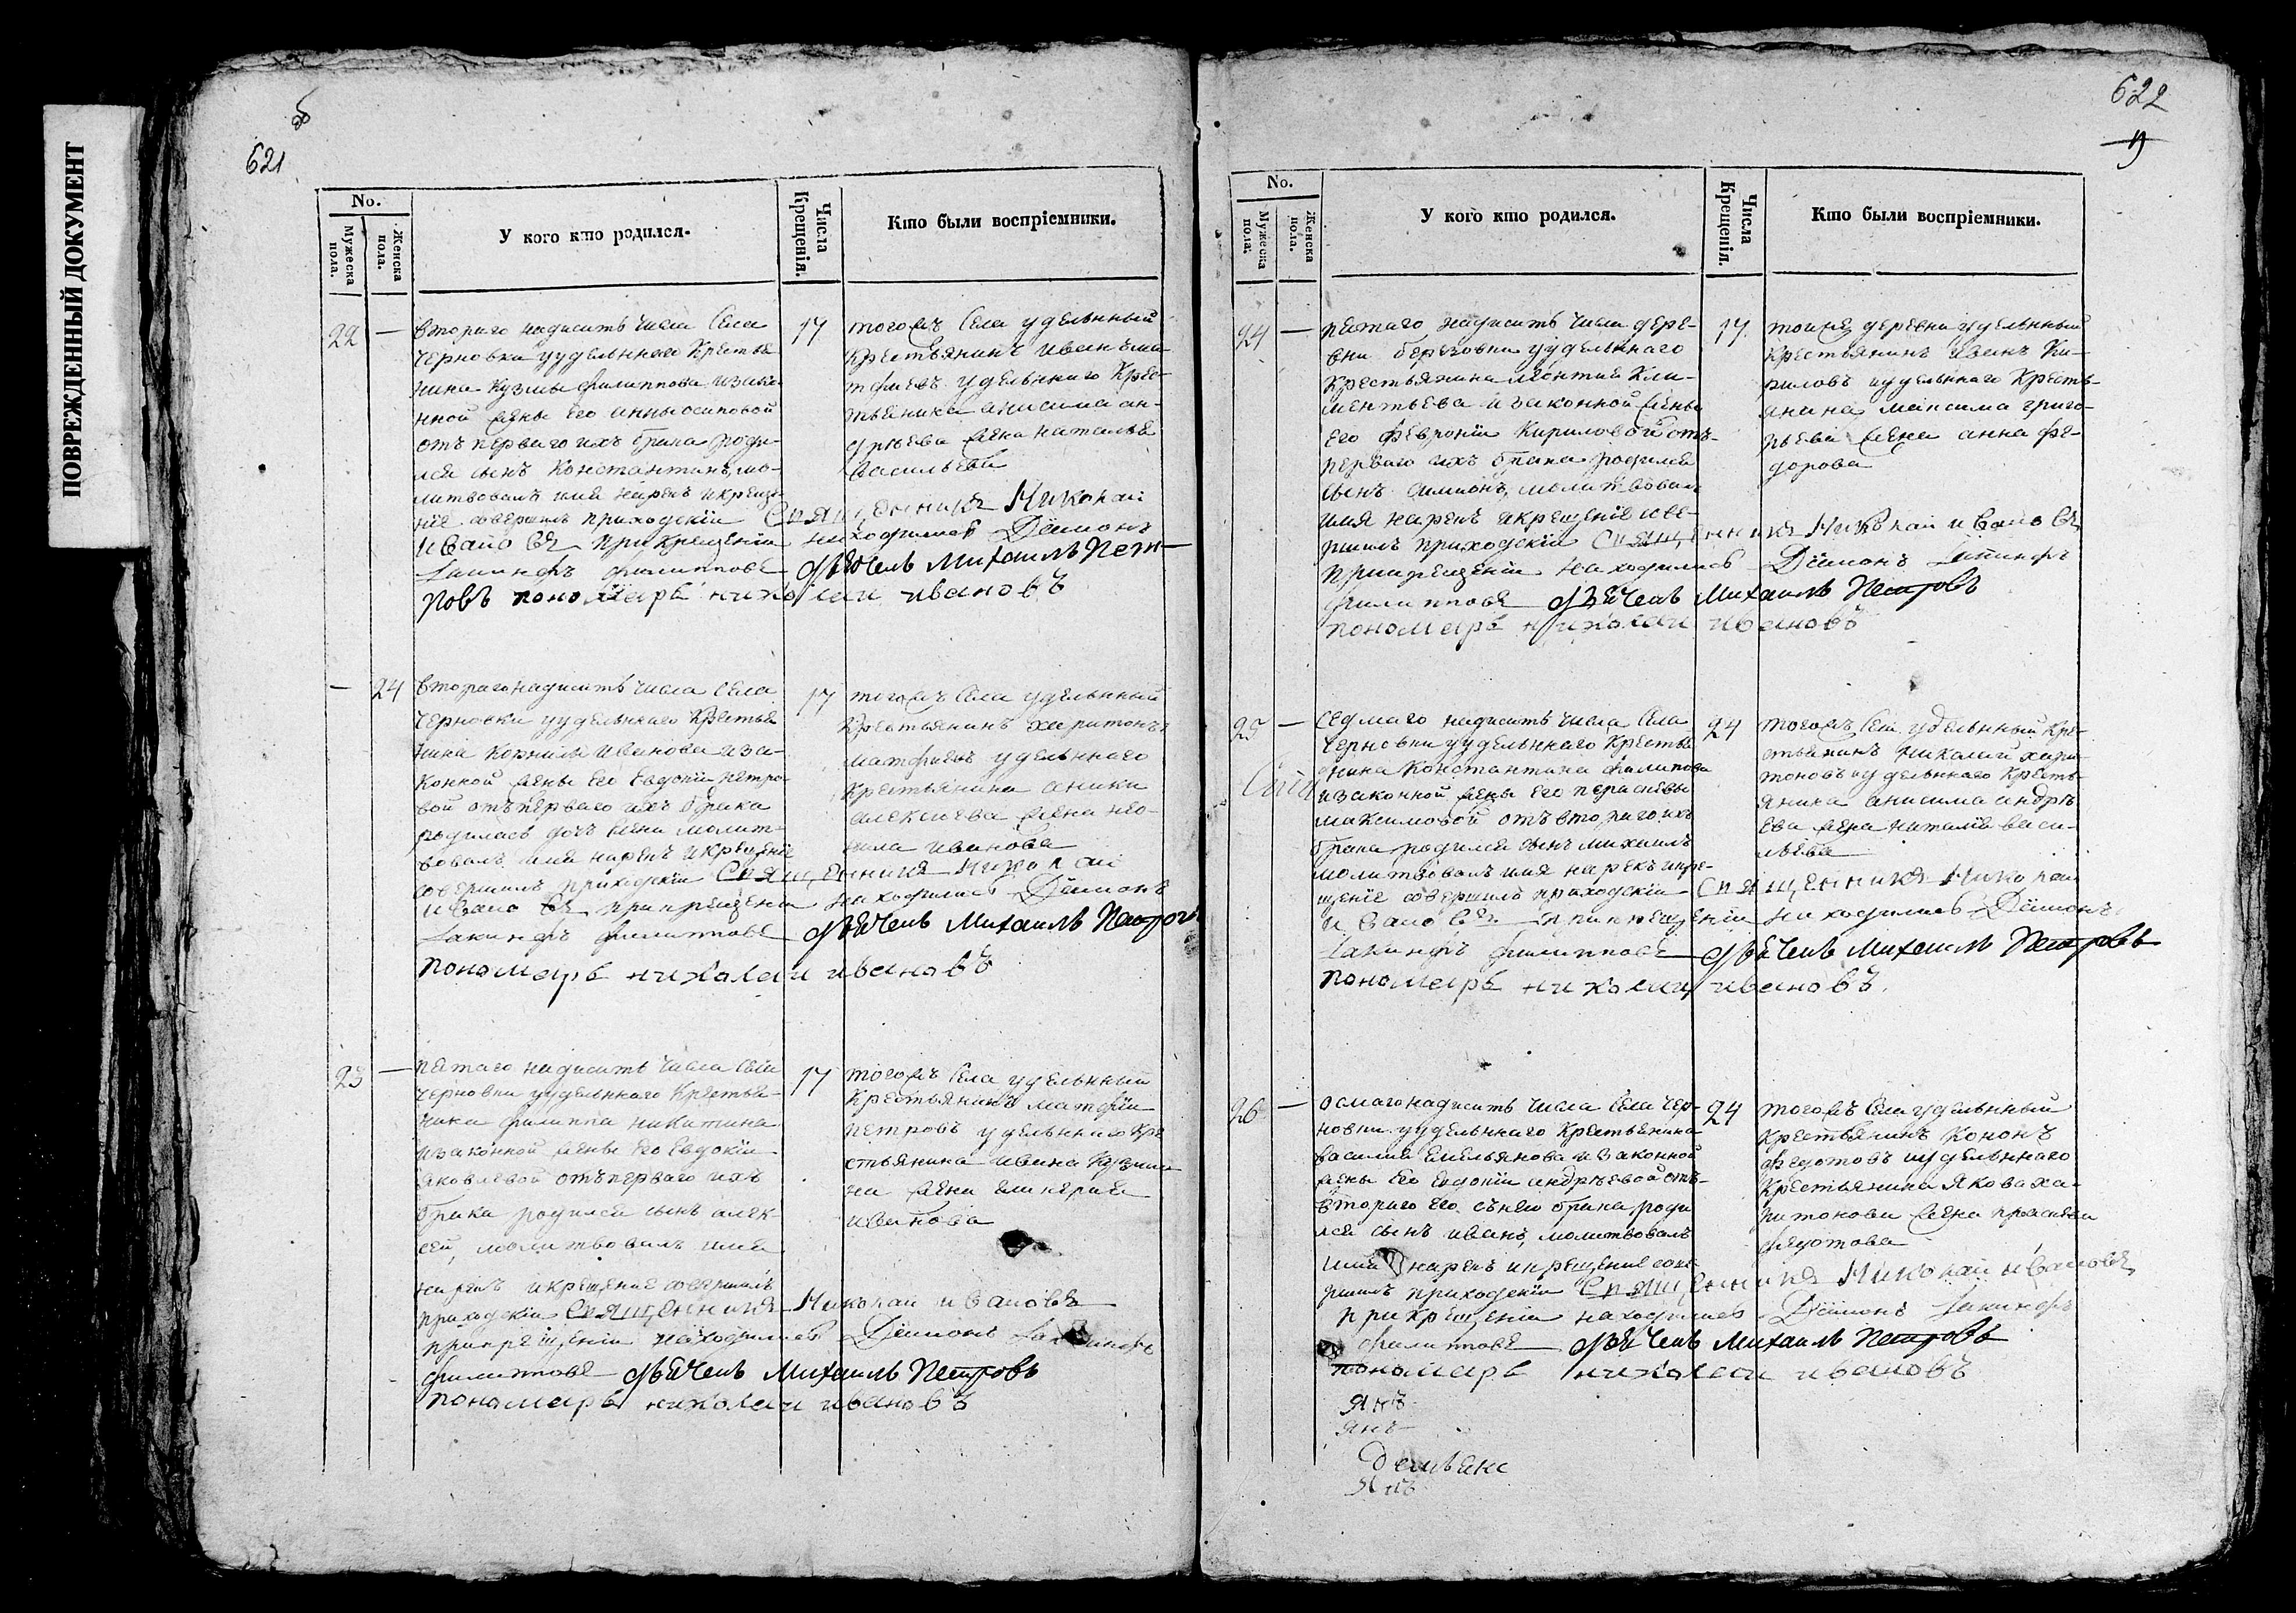 ПОВРЕЖДЕННЫЙ ДОКУМЕНТ
об
621
No.
Мужеска пола.
Женска пола.
У кого кто родился.
Числа Крещенія.
Кто были воспріемники.
22 —
втораго надесять числа села
Черновки уудельнаго крестья
нина Кузмы филиппова изако
нной жены его анны осиповой
отъ перваго ихъ брака роди-
лся сынъ Константинъ, мо-
литвовалъ имя нарекъ икреще-
ніе совершилъ приходскіи Священникъ Николай
Ивановъ при крещеніи находились Діяконъ
Iакинфъ филипповъ дьячекъ Михаилъ Пет-
ровъ пономарь николаи ивановъ
17
тогожъ села удельный
крестьянинъ иванъ ма-
тфиевъ удельнаго крес-
тьянина анисима ан-
дреева жена наталья
васильева
— 24
втораго надесять числа села
Черновки уудельнаго крестья
нина Корнилы иванова иза-
конной жены его Евдокіи петро-
вой отъ перваго ихъ брака
родилась дочь молит-
вовалъ имя нарекъ икрещеніе
совершилъ приходскіи Священникъ Николай
Ивановъ при крещеніи находились Діяконъ
Iакинфъ филипповъ дьячекъ Михаилъ Петровъ
пономарь николаи ивановъ
17
тогожъ села удельный
крестьянинъ харитонъ
матфиевъ удельнаго
крестьянина аники
алексиева жена нео-
нила иванова
23 —
пятаго надесять числа села
Черновки уудельнаго крестья-
нина филиппа никитина
изаконной жены его Евдокіи
яковлевой отъ перваго ихъ
брака родился сынъ алек-
сей, молитвовалъ имя
нарекъ икрещение совершилъ
приходскіи Священникъ Николай Ивановъ
при крещеніи находились Діяконъ Iакинфъ
филипповъ дьячекъ Михаилъ Петровъ
пономарь николаи ивановъ
17
тогожъ села удельный
крестьянинъ матфіи
петровъ удельнаго кре
стьянина ивана кузми
на жена гликерия
иванова
622
9
No.
Мужеска пола.
Женска пола.
У кого кто родился.
Числа Крещенія.
Кто были воспріемники.
24 —
пятаго надесять числа дере-
вни березовки уудельнаго
крестьянина леонтия Кли-
ментьева изаконной жены
его февроніи Кириловой отъ
перваго ихъ брака родился
сынъ симионъ, молитвовалъ
имя нарекъ икрещеніе сове-
ршилъ приходскіи Священникъ Николай Ивановъ
при крещеніи находились Діяконъ Iакинфъ
филипповъ дьячекъ Михаилъ Петровъ
пономарь николаи ивановъ
17
тоиже деревни удельный
крестьянинъ иванъ Ки-
риловъ иудельнаго кресть-
янина максима григо-
рьева жена анна фе-
дорова
25 —
седмаго надесять числа села
Черновки уудельнаго крестья
нина Константина филипова
изаконной жены его параскевы
максимовой отъ втораго ихъ
брака родился сынъ михаилъ
молитвовалъ имя нарекъ икре-
щеніе совершилъ приходскіи Священникъ Николай
Ивановъ при крещеніи находились Діяконъ
Iакинфъ филипповъ дьячекъ Михаилъ Петровъ
пономарь николаи ивановъ.
24
тогожъ села удельный кре-
стьянинъ николай хари-
тоновъ иудельнаго кресть-
янина анисима андре
ева жена наталія васи-
льева
26 —
осмаго надесять числа села чер-
новки уудельнаго крестьянина
василия Емельянова изаконной
жены его Евдокіи андреевой отъ
втораго его съ нею брака, роди
лся сынъ иванъ, молитвовалъ
имя нарекъ икрещение сове
ршилъ приходскіи Священникъ Николай Ивановъ
при крещеніи находились Діяконъ Iакинфъ
филипповъ дьячекъ Михаилъ Петровъ
пономарь николаи ивановъ
янъ
янъ
янъ
24
тогожъ села удельный
крестьянинъ Кононъ
федотовъ иудельнаго
крестьянина якова ха-
ритонова жена
федотова